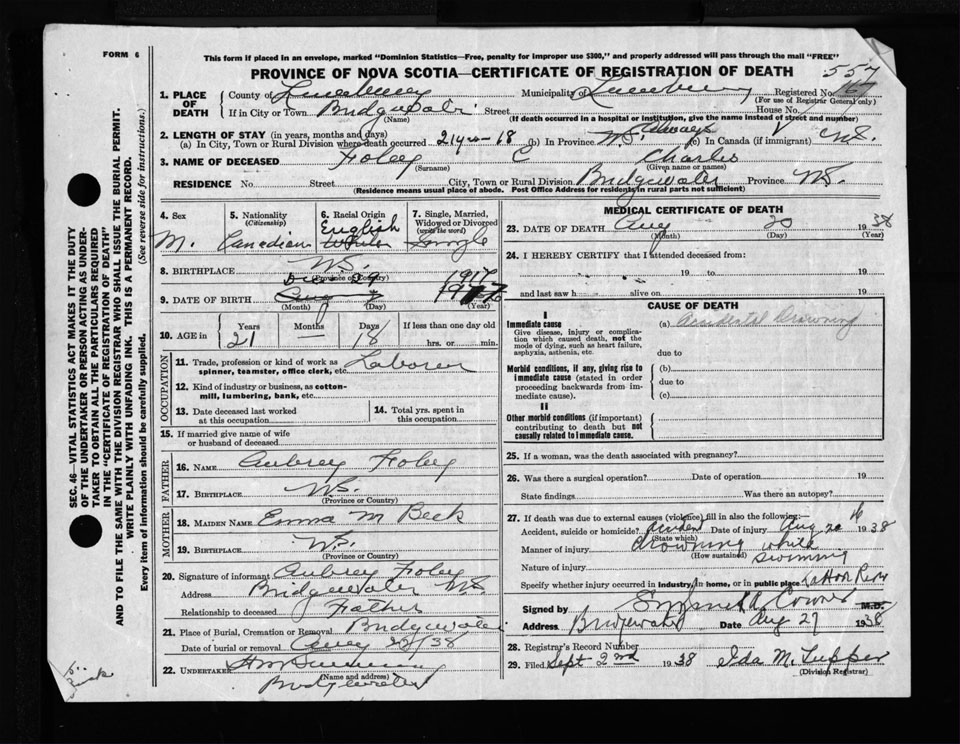 FORM 6
This form if placed in an envelope, marked "Dominion Statistics—Free, penalty for improper use $300," and properly addressed will pass through the mail "FREE"
PROVINCE OF NOVA SCOTIA—CERTIFICATE OF REGISTRATION OF DEATH
557
SEC. 46—VITAL STATISTICS ACT MAKES IT THE DUTY
OF THE UNDERTAKER OR PERSON ACTING AS UNDER-
TAKER TO OBTAIN ALL THE PARTICULARS REQUIRED
IN THE "CERTIFICATE OF REGISTRATION OF DEATH"
AND TO FILE THE SAME WITH THE DIVISION REGISTRAR WHO SHALL ISSUE THE BURIAL PERMIT.
WRITE PLAINLY WITH UNFADING INK. THIS IS A PERMANENT RECORD.
Every item of information should be carefully supplied. (See reverse side for instructions.)
1. PLACE OF DEATH County of Lunenburg Municipality of Lunenburg Registered No. 167
(For use of Registrar General only)
If in City or Town Bridgewater Street House No.
(Name) (If death occurred in a hospital or institution, give the name instead of street and number)
2. LENGTH OF STAY (in years, months and days)
(a) In City, Town or Rural Division where death occurred 21 yrs - 18 (b) In Province N.S. Always (c) In Canada (if immigrant)
3. NAME OF DECEASED Foley C Charles
(Surname) (Given name or names)
RESIDENCE No. Street City, Town or Rural Division Bridgewater Province N.S.
(Residence means usual place of abode. Post Office Address for residents in rural parts not sufficient)
4. Sex M.
5. Nationality (Citizenship) Canadian
6. Racial Origin English
7. Single, Married, Widowed or Divorced (write the word) Single
8. BIRTHPLACE N.S.
(Province or Country)
Dec 29 1917
9. DATE OF BIRTH Aug
(Month) (Day) (Year)
10. AGE in Years 21 Months — Days 18 If less than one day old hrs. or min.
OCCUPATION
11. Trade, profession or kind of work as spinner, teamster, office clerk, etc. Laborer
12. Kind of industry or business, as cotton-mill, lumbering, bank, etc.
13. Date deceased last worked at this occupation
14. Total yrs. spent in this occupation
15. If married give name of wife or husband of deceased
FATHER
16. NAME Aubrey Foley
17. BIRTHPLACE N.S.
(Province or Country)
MOTHER
18. MAIDEN NAME Emma M Beck
19. BIRTHPLACE N.S.
(Province or Country)
20. Signature of informant Aubrey Foley
Address Bridgewater N.S.
Relationship to deceased Father
21. Place of Burial, Cremation or Removal Bridgewater
Date of burial or removal Aug 22/38
22. UNDERTAKER
(Name and address)
Bridgewater
MEDICAL CERTIFICATE OF DEATH
23. DATE OF DEATH Aug 20 1938
(Month) (Day) (Year)
24. I HEREBY CERTIFY that I attended deceased from:
19 to 19
and last saw h alive on 19
CAUSE OF DEATH
I
Immediate cause (a) Accidental Drowning
Give disease, injury or complication which caused death, not the mode of dying, such as heart failure, asphyxia, asthenia, etc. due to
Morbid conditions, if any, giving rise to immediate cause (stated in order proceeding backwards from immediate cause). (b)
due to
(c)
II
Other morbid conditions (if important) contributing to death but not causally related to immediate cause.
25. If a woman, was the death associated with pregnancy?
26. Was there a surgical operation? Date of operation 19
State findings Was there an autopsy?
27. If death was due to external causes (violence) fill in also the following:—
Accident, suicide or homicide? Accident Date of injury Aug 20 1938
(State which)
Manner of injury drowning while swimming
(How sustained)
Nature of injury
Specify whether injury occurred in industry, in home, or in public place LaHave River
Signed by Coroner M.D.
Address Bridgewater Date Aug 27 1938
28. Registrar's Record Number
29. Filed Sept 2nd 1938 Ida M. Tupper
(Division Registrar)